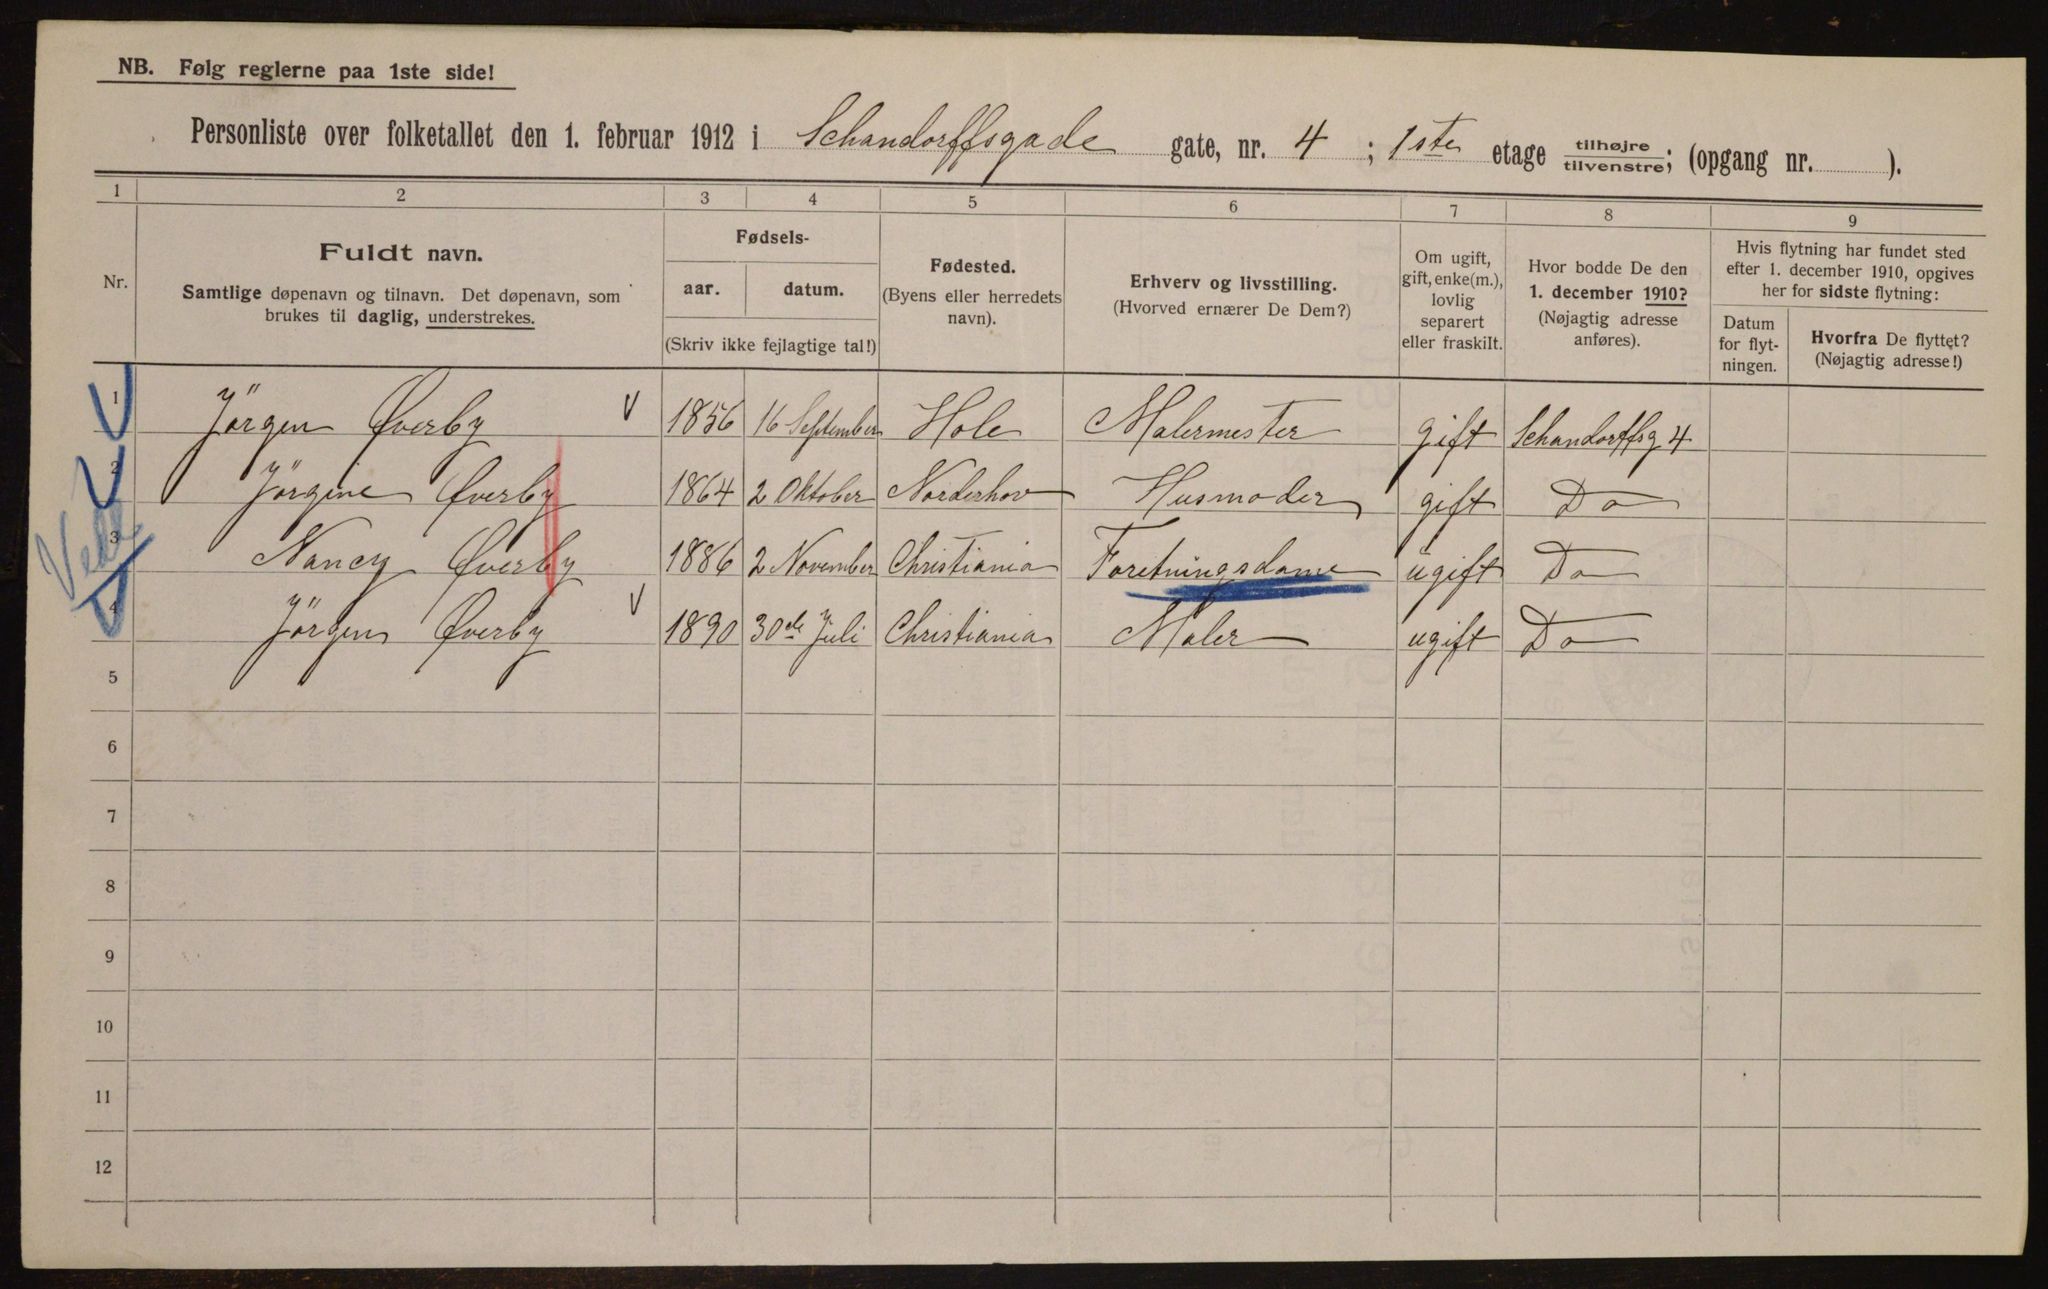 NB. Følg reglerne paa 1ste side!
Personliste over folketallet den 1. februar 1912 i Schandorffsgade gate, nr. 4 ; 1ste etage tilhøjre/tilvenstre; (opgang nr. ).
1 2 3 4 5 6 7 8 9
Nr.
Fuldt navn.
Samtlige døpenavn og tilnavn. Det døpenavn, som
brukes til daglig, understrekes.
Fødsels-
aar. datum.
(Skriv ikke fejlagtige tal!)
Fødested.
(Byens eller herredets
navn).
Erhverv og livsstilling.
(Hvorved ernærer De Dem?)
Om ugift,
gift, enke(m.),
lovlig
separert
eller fraskilt.
Hvor bodde De den
1. december 1910?
(Nøjagtig adresse
anføres).
Hvis flytning har fundet sted
efter 1. december 1910, opgives
her for sidste flytning:
Datum
for flyt-
ningen.
Hvorfra De flyttet?
(Nøjagtig adresse!)
1 Jörgen Øverby V 1856 16 September Hole Malermester gift Schandorffsg 4
2 Jörgine Øverby 1864 2 Oktober Norderhov Husmoder gift Do
3 Nancy Øverby 1886 2 November Christiania Foretningsdame ugift Do
4 Jörgen Øverby V 1890 30de Juli Christiania Maler ugift Do
5
6
7
8
9
10
11
12